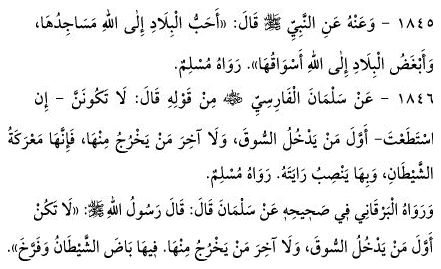 ١٨٤٥ - وَعَنْهُ عَنِ النَّبِيِّ ﷺ قَالَ: «أَحَبُّ الْبِلَادِ إِلَى اللهِ مَسَاجِدُهَا،
وَأَبْغَضُ الْبِلَادِ إِلَى اللهِ أَسْوَاقُهَا». رَوَاهُ مُسْلِمٌ.
١٨٤٦ - عَنْ سَلْمَانَ الْفَارِسِيِّ ﵁ مِنْ قَوْلِهِ قَالَ: لَا تَكُونَنَّ - إِنِ
اسْتَطَعْتَ- أَوَّلَ مَنْ يَدْخُلُ السُّوقَ، وَلَا آخِرَ مَنْ يَخْرُجُ مِنْهَا، فَإِنَّهَا مَعْرَكَةُ
الشَّيْطَانِ، وَبِهَا يَنْصِبُ رَايَتَهُ. رَوَاهُ مُسْلِمٌ.
وَرَوَاهُ الْبَرْقَانِي فِي صَحِيحِهِ عَنْ سَلْمَانَ قَالَ: قَالَ رَسُولُ اللهِ ﷺ: «لَا تَكُنْ
أَوَّلَ مَنْ يَدْخُلُ السُّوقَ، وَلَا آخِرَ مَنْ يَخْرُجُ مِنْهَا. فِيهَا بَاضَ الشَّيْطَانُ وَفَرَّخَ».